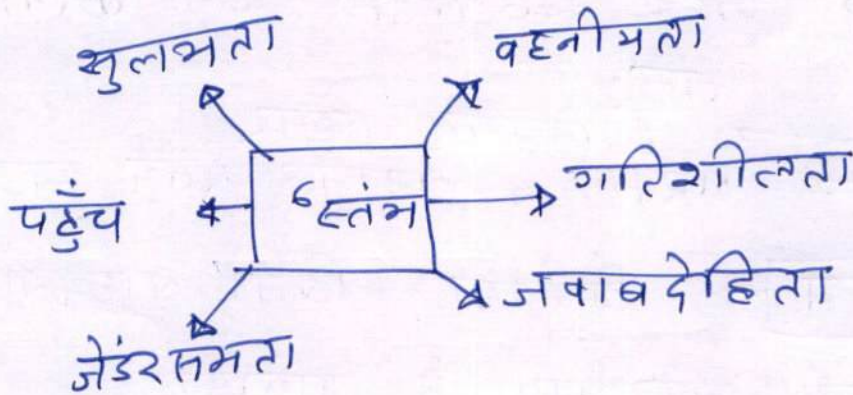 सुलभता
वहनीयता
पहुँच
6 स्तंभ
गतिशीलता
जवाबदेहिता
जेंडर समता